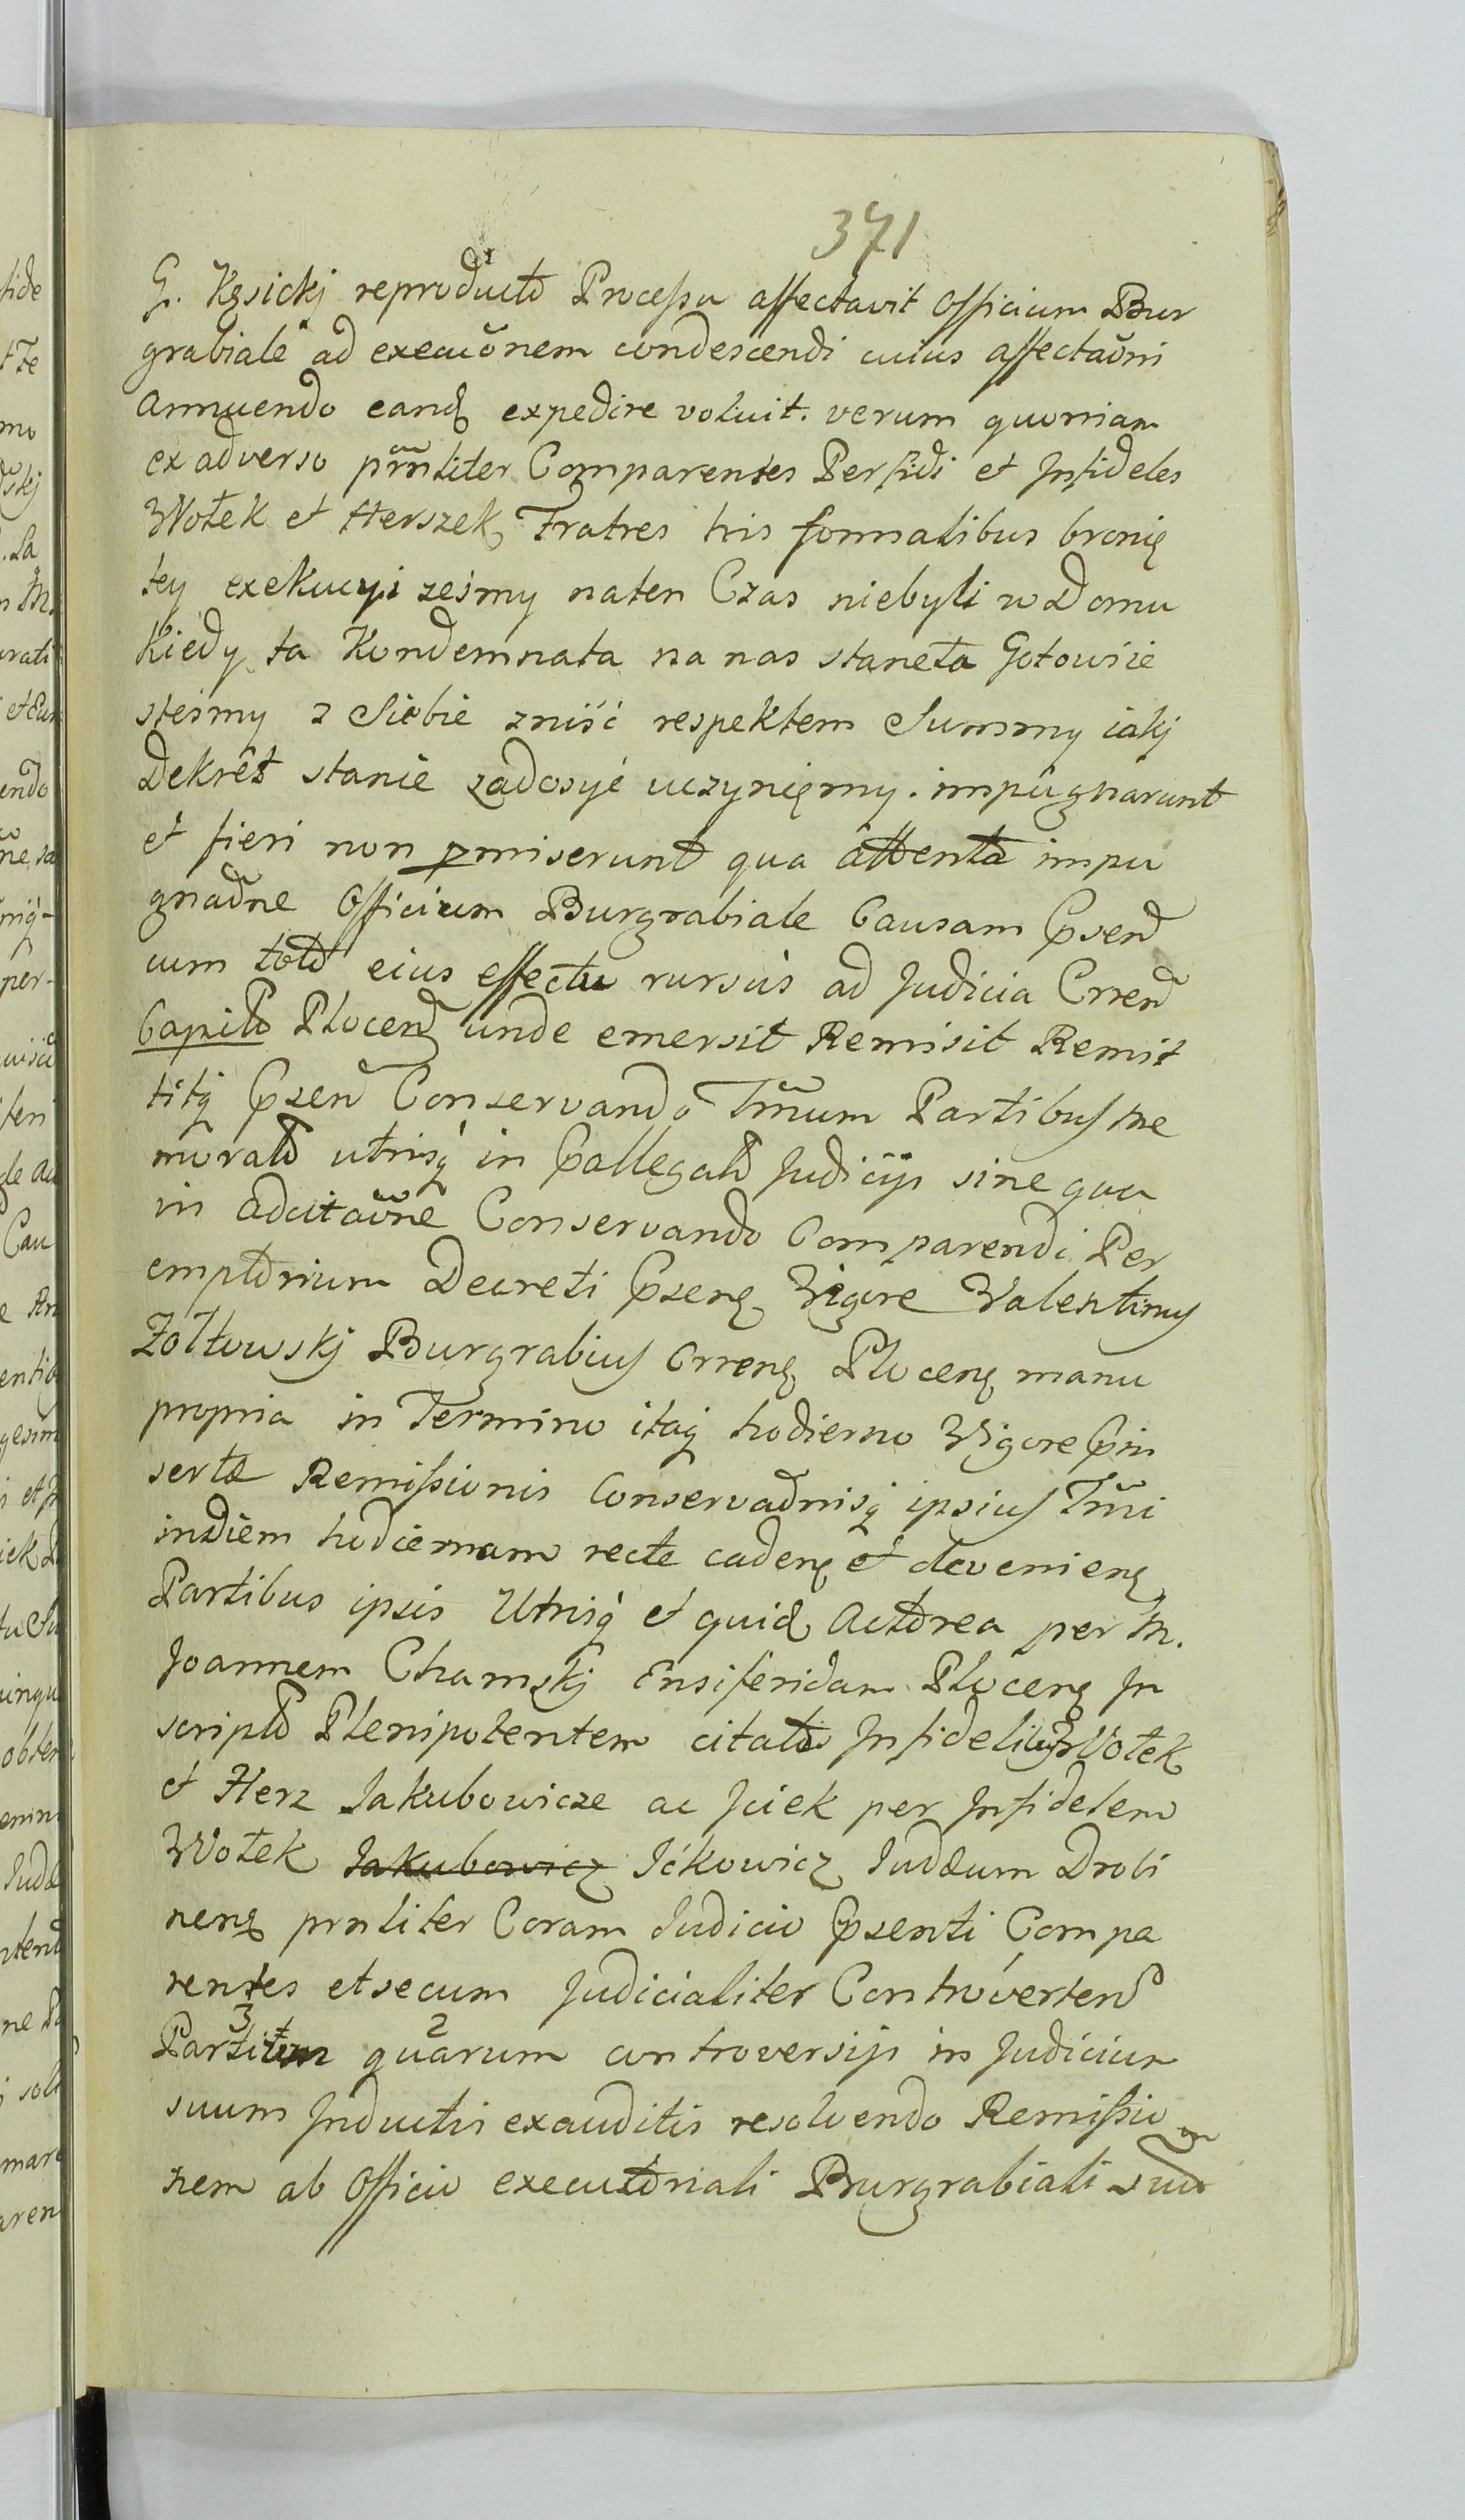 371
G. Kęsickj reproducto Processu affectavit Officium Bur
grabiale ad execuõnem condescendi cuius affectaõni
annuendo eandꝫ expedire voluit. verum quoniam
ex adverso pñnliter Comparentes Perfidi et Infideles
Wołek et Herszek Fratres his formalibus bronię
tey exekucyi ześmy naten Czas niebyli w Domu
Kiedy ta Kondemnata na nas staneła Gotowi ie
steśmy z Siebie zniść respektem Summy iakj
Dekret stanie zadosyć uczynięmy. impugnarunt
et fieri non pmiserunt qua attenta impu
gnaõne Officium Burgrabiale Causam Pñsend
cum toto eius effectu rursus ad Judicia Crrend
Capit. Plocend unde emersit Remisit Remit
titq Pñsend Conservando Tm̃um Partibus me
morat. utrisq in Pallegat. Judicijs sine qua
in adcitaõne Conservando Comparendi Per
emptorium Decreti Pñsenꝫ Vigore Valentinus
Zołtowskj Burgrabius Crrenꝫ Plocenꝫ manu
propria in Termino itaq hodierno Vigore Pin
sertæ Remissionis Conservaõnisq ipsius Tm̃i
in diem hodiernam recte cadenꝫ et devenienꝫ
Partibus ipsis Utrisq et quid. Actorea per M.
Joannem Chamskj Ensiferidam Plocenꝫ In
script. Plenipotentem citat. Infidelibus Wołek
et Herz Jakubowicze ac Jciek per Infidelem
Wołek Jakubowicz Ickowicz Judæum Drobi
nenꝫ prnliter Coram Judicio Pñsenti Compa
rentes et secum Judicialiter Controverten.
3 2
Partium quarum controversijs in Judicium
suum Inductis exauditis resolvendo Remissio
nem ab Officio executoriali Burgrabiali suo